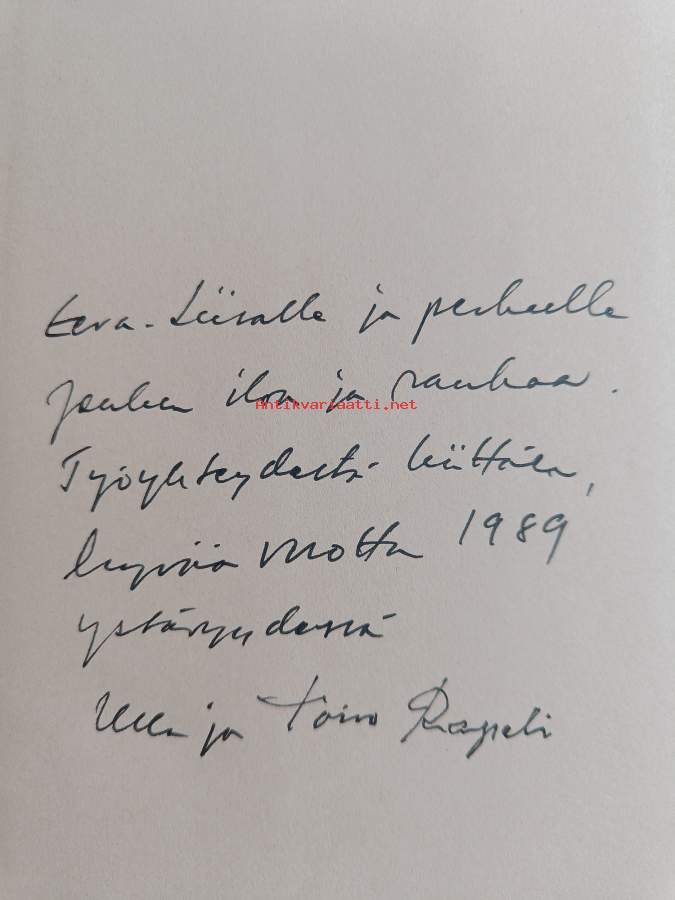 Eeva-Liisalle ja perheelle
joulun iloa ja rauhaa.
Antikvariaatti.net
Työyhteydestä kiittäen,
hyvää vuotta 1989
ystävyydessä
Ulla ja Toivo Rapeli